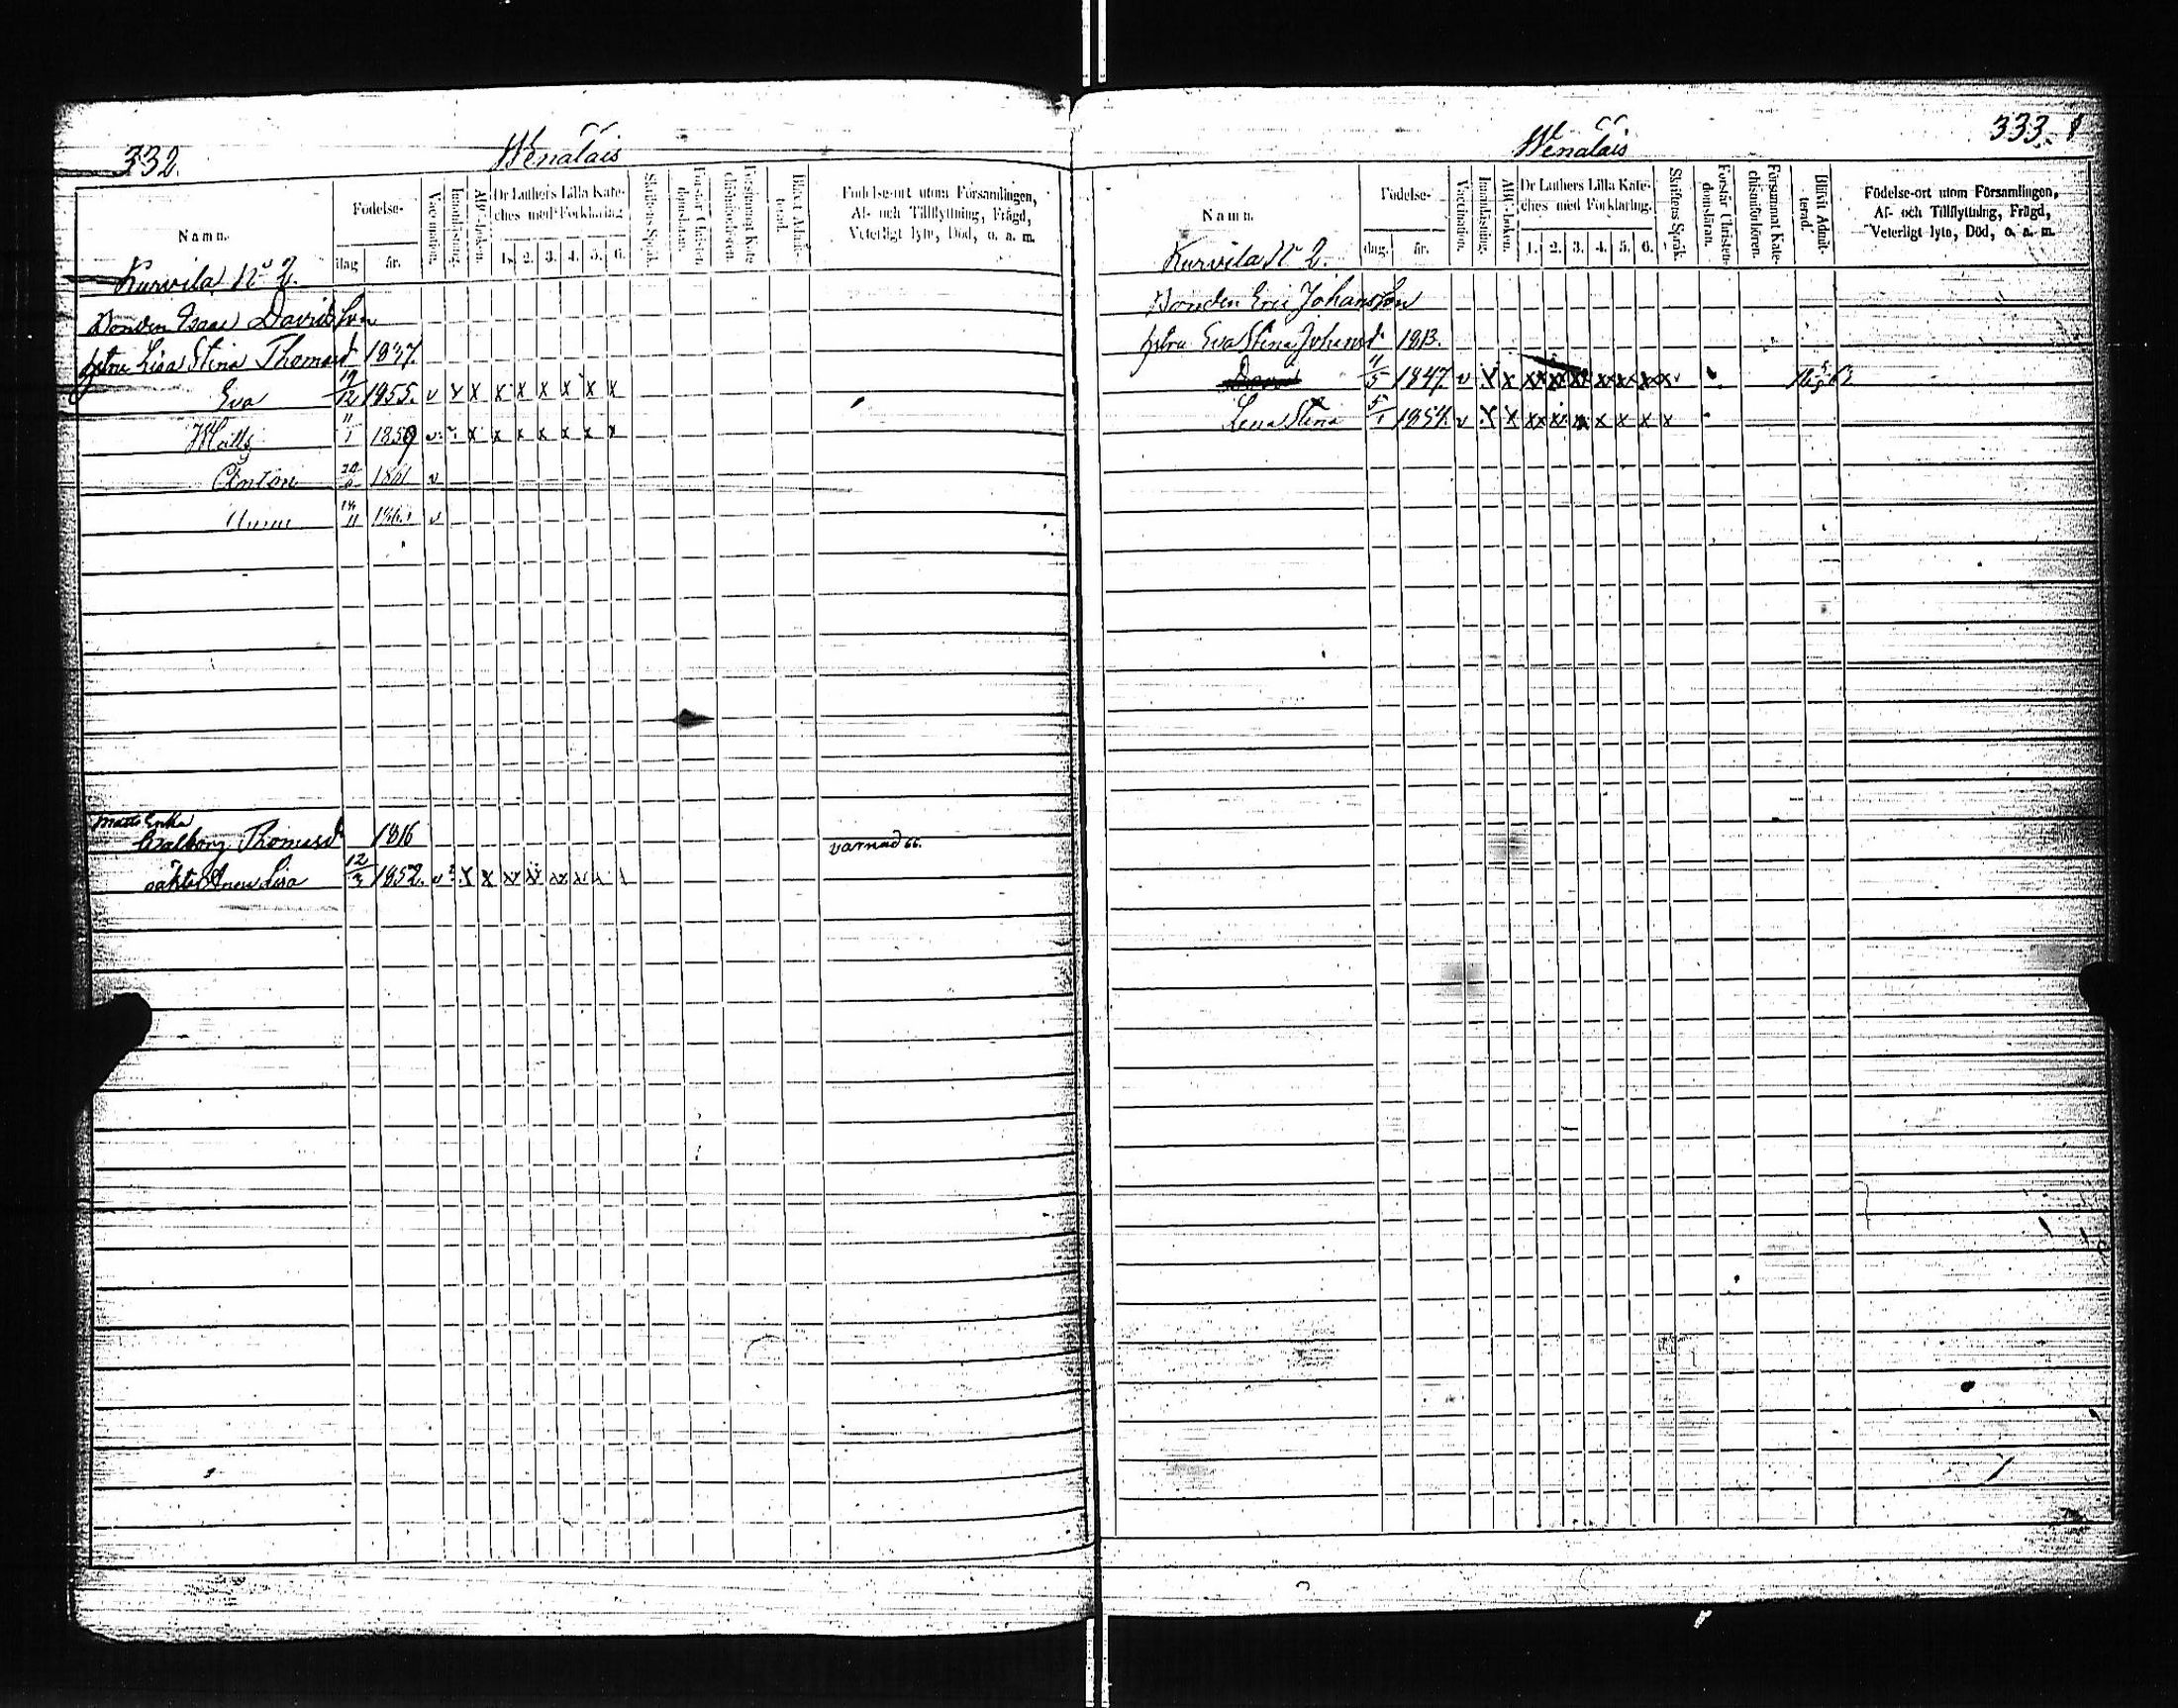 332.
Wenäläis
Namn.
Födelse-
dag
år.
Vaccination.
Innanläsning.
Abc-boken.
Dr Luthers Lilla Kate-
ches med Förklaring
1. 2. 3. 4. 5. 6.
Skriftens Språk.
Förstår Christen-
domsläran.
Försummat Kate-
chismiförhören.
Blivit Admit-
terad.
Födelse-ort utom Församlingen,
Af- och Tillflyttning, Frägd,
Veterligt lyte, Död, o. a. m.
Kurvila No 2.
Bonden Isaac Davidsson
hstru Lisa Stina Thomasd 1837.
Eva 19/12 1855. v x x x x x x x x
Matts 11/1 1859 v x x x x x x x
Anton 1861 v
14/11 v
Matts Enka
Walborg Thomasd 1816 varnad 66.
Anna Lisa 12/3 1852. v
333.
Wenäläis
Namn.
Födelse-
dag.
år.
Vaccination.
Innanläsning.
Abc-boken.
Dr Luthers Lilla Kate-
ches med Förklaring.
1. 2. 3. 4. 5. 6.
Skriftens Språk.
Förstår Christen-
domsläran.
Försummat Kate-
chismiförhören.
Blivit Admit-
terad.
Födelse-ort utom Församlingen,
Af- och Tillflyttning, Frägd,
Veterligt lyte, Död, o. a. m.
Kurvila No 2.
Bonden Eric Johansson
hstru Eva Stina Johansd 1813.
1847 v
Lena Stina 5/1 1854. v